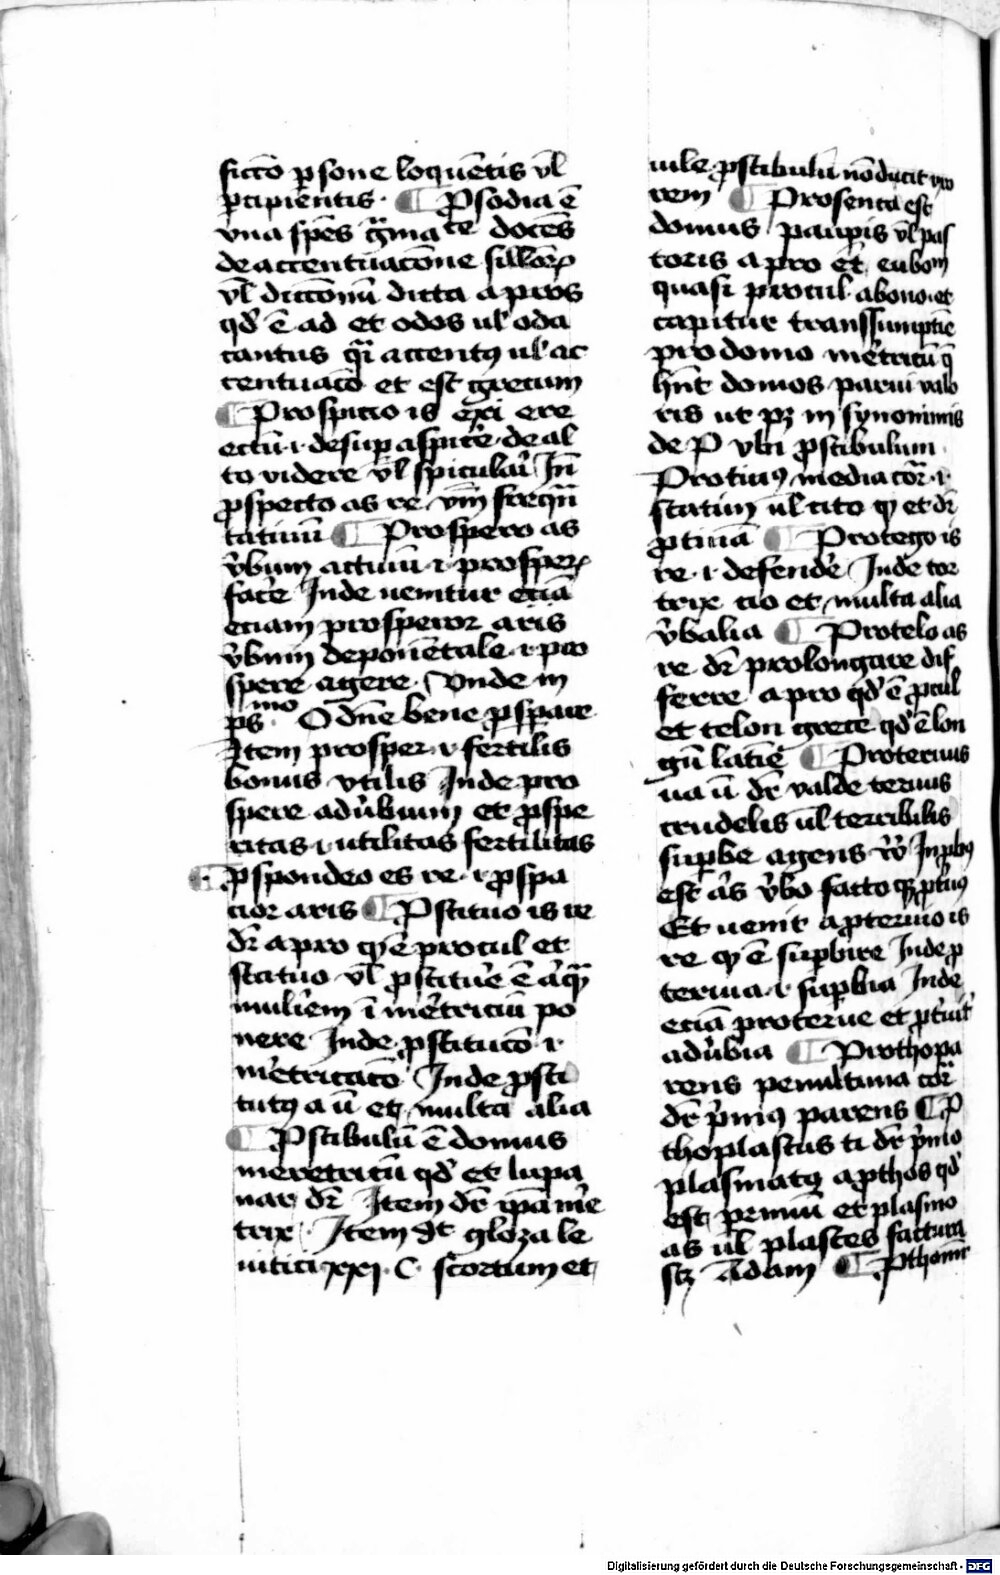 fictō ꝑsone loquētis ul̄
ꝑcipientis · ¶ Ꝓsodia ē
vna spēs gͣma te docēs
de accentuacōne sillaꝝ
ul̄ diccōnū dicta a pros
qd̓ ē ad et odos ul̓ oda
cantus qͣi accentꝯ ul̓ ac
centuacō et est grecum
¶ Prospicio is exi ere
ectū ·i· desuꝑ aspic̓e · de al
to videre ul̄ speculari In̄
ꝓspecto as re vn̄
tatiuū ¶ Prospero as
v̓bum actiuū ·i· prosperꝝ
fac̓e Inde uenitur eciā
eciam prosperor aris
v̓bum deponētale ·i· pro
spere agere · Vnde in
pͥs mo O dn̄e bene ꝓsꝑare
Item prosper ·i· fertilis
bonus vtilis Inde pro
spere adu̓bium et ꝓspe
ritas ·i· utilitas fertilitas
¶ ꝓspondeo es re ·i· ꝓspa
cior aris ¶ Ꝓstituo is re
dr̄ a pro qꝫ ē procul et
statuo ul̄ ꝓstitu̓e ē aliqͣ
muli̓em ī me̓triciū po
nere Inde ꝓstitucō ·i·
me̓tricacō Inde ꝓsti
tutꝯ a ū et multa alia
¶ Ꝓstibulū ē domus
meretricū qd̓ et lupa
nar dr̄ Item dr̄ ip̄a me̓
trix · Item dt̄ gloza le
uitici xxi · C · scortum et
uile ꝓstibulū nō ducit uxo
rem ¶ Prosenca est
domus pauꝑis ul̄ pas
toris a pro et eubom
quasi procul a bono · et
capitur transsumptiē
pro domo me̓tricū q̄
hn̄t domos parui valo
ris ut pꝫ in synonimis
de P vbi ꝓstibulum
Protinꝯ media cor̄ ·i·
statim ul̄ cito qꝫ et dr̄
ꝓtinā ¶ Protego is
re ·i· defend̓e Inde tor
trix cio et multa alia
v̓balia ¶ Protelo as
re dr̄ prolongare dif
ferre a pro qd̓ ē ꝓcul
et telon grece qd̓ ē lon
gū latīe ¶ Proteruus
ua ū dr̄ valde teruus
crudelis ul̄ terribilis
suꝑbe agens
est
Et uenit a ꝓteruio is
re qꝫ ē suꝑbire Inde ꝓ
teruia ·i· suꝑbia Inde
eciā proterue et ꝓt̓uit̓
adu̓bia ¶ Prothopa
rens penultima cor̄
dr̄ p̓mꝯ parens ¶ Ꝓ
thoplastus ti dr̄ p̓mo
plasmatꝯ a ꝓthos qd̓
est primū et plasmo
as ul̄ plastes factura
scꝫ Adam ¶ Ꝓthomr̄
Digitalisierung gefördert durch die Deutsche Forschungsgemeinschaft - DFG